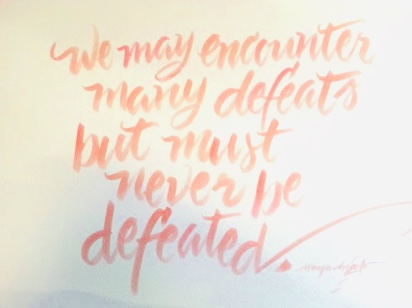 we may encounter
many defeats
but must
never be
defeated.
maya angelou